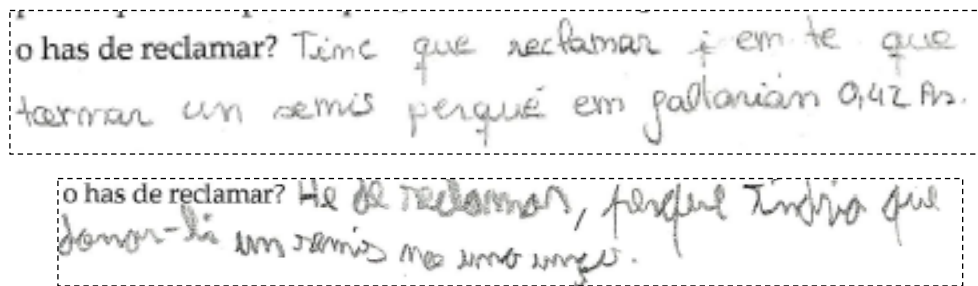 o has de reclamar? Tinc que reclamar i em te que
tornar un semis perquè em faltarian 0,42 As.
o has de reclamar? He de reclamar, perque Tindria que
donar-li un semis no una unça.